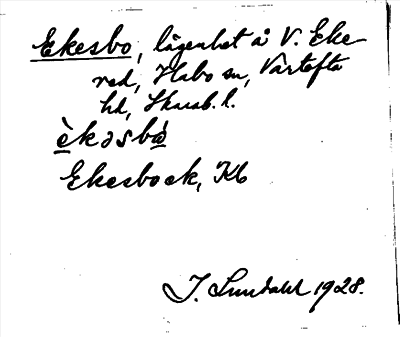 Ekesbo, lägenhet å V. Eke
red, Habo sn, Vartofta
hd, Skarab. l.
èkəsbò
Ekesboek, Kb
I. Lundahl 1928.